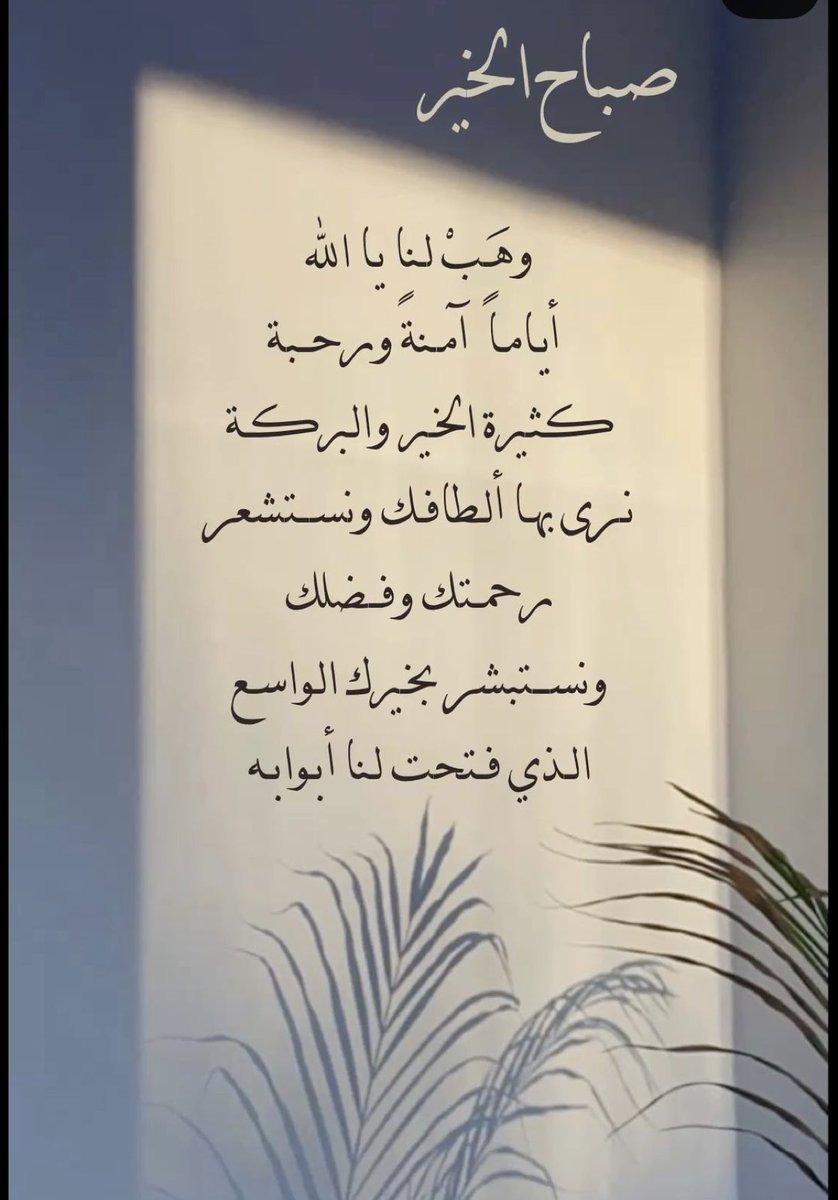 صباح الخير
وهَبْ لنا يا الله
أياماً آمنةً ورحبة
كثيرة الخير والبركة
نرى بها ألطافك ونستشعر
رحمتك وفضلك
ونستبشر بخيرك الواسع
الذي فتحت لنا أبوابه